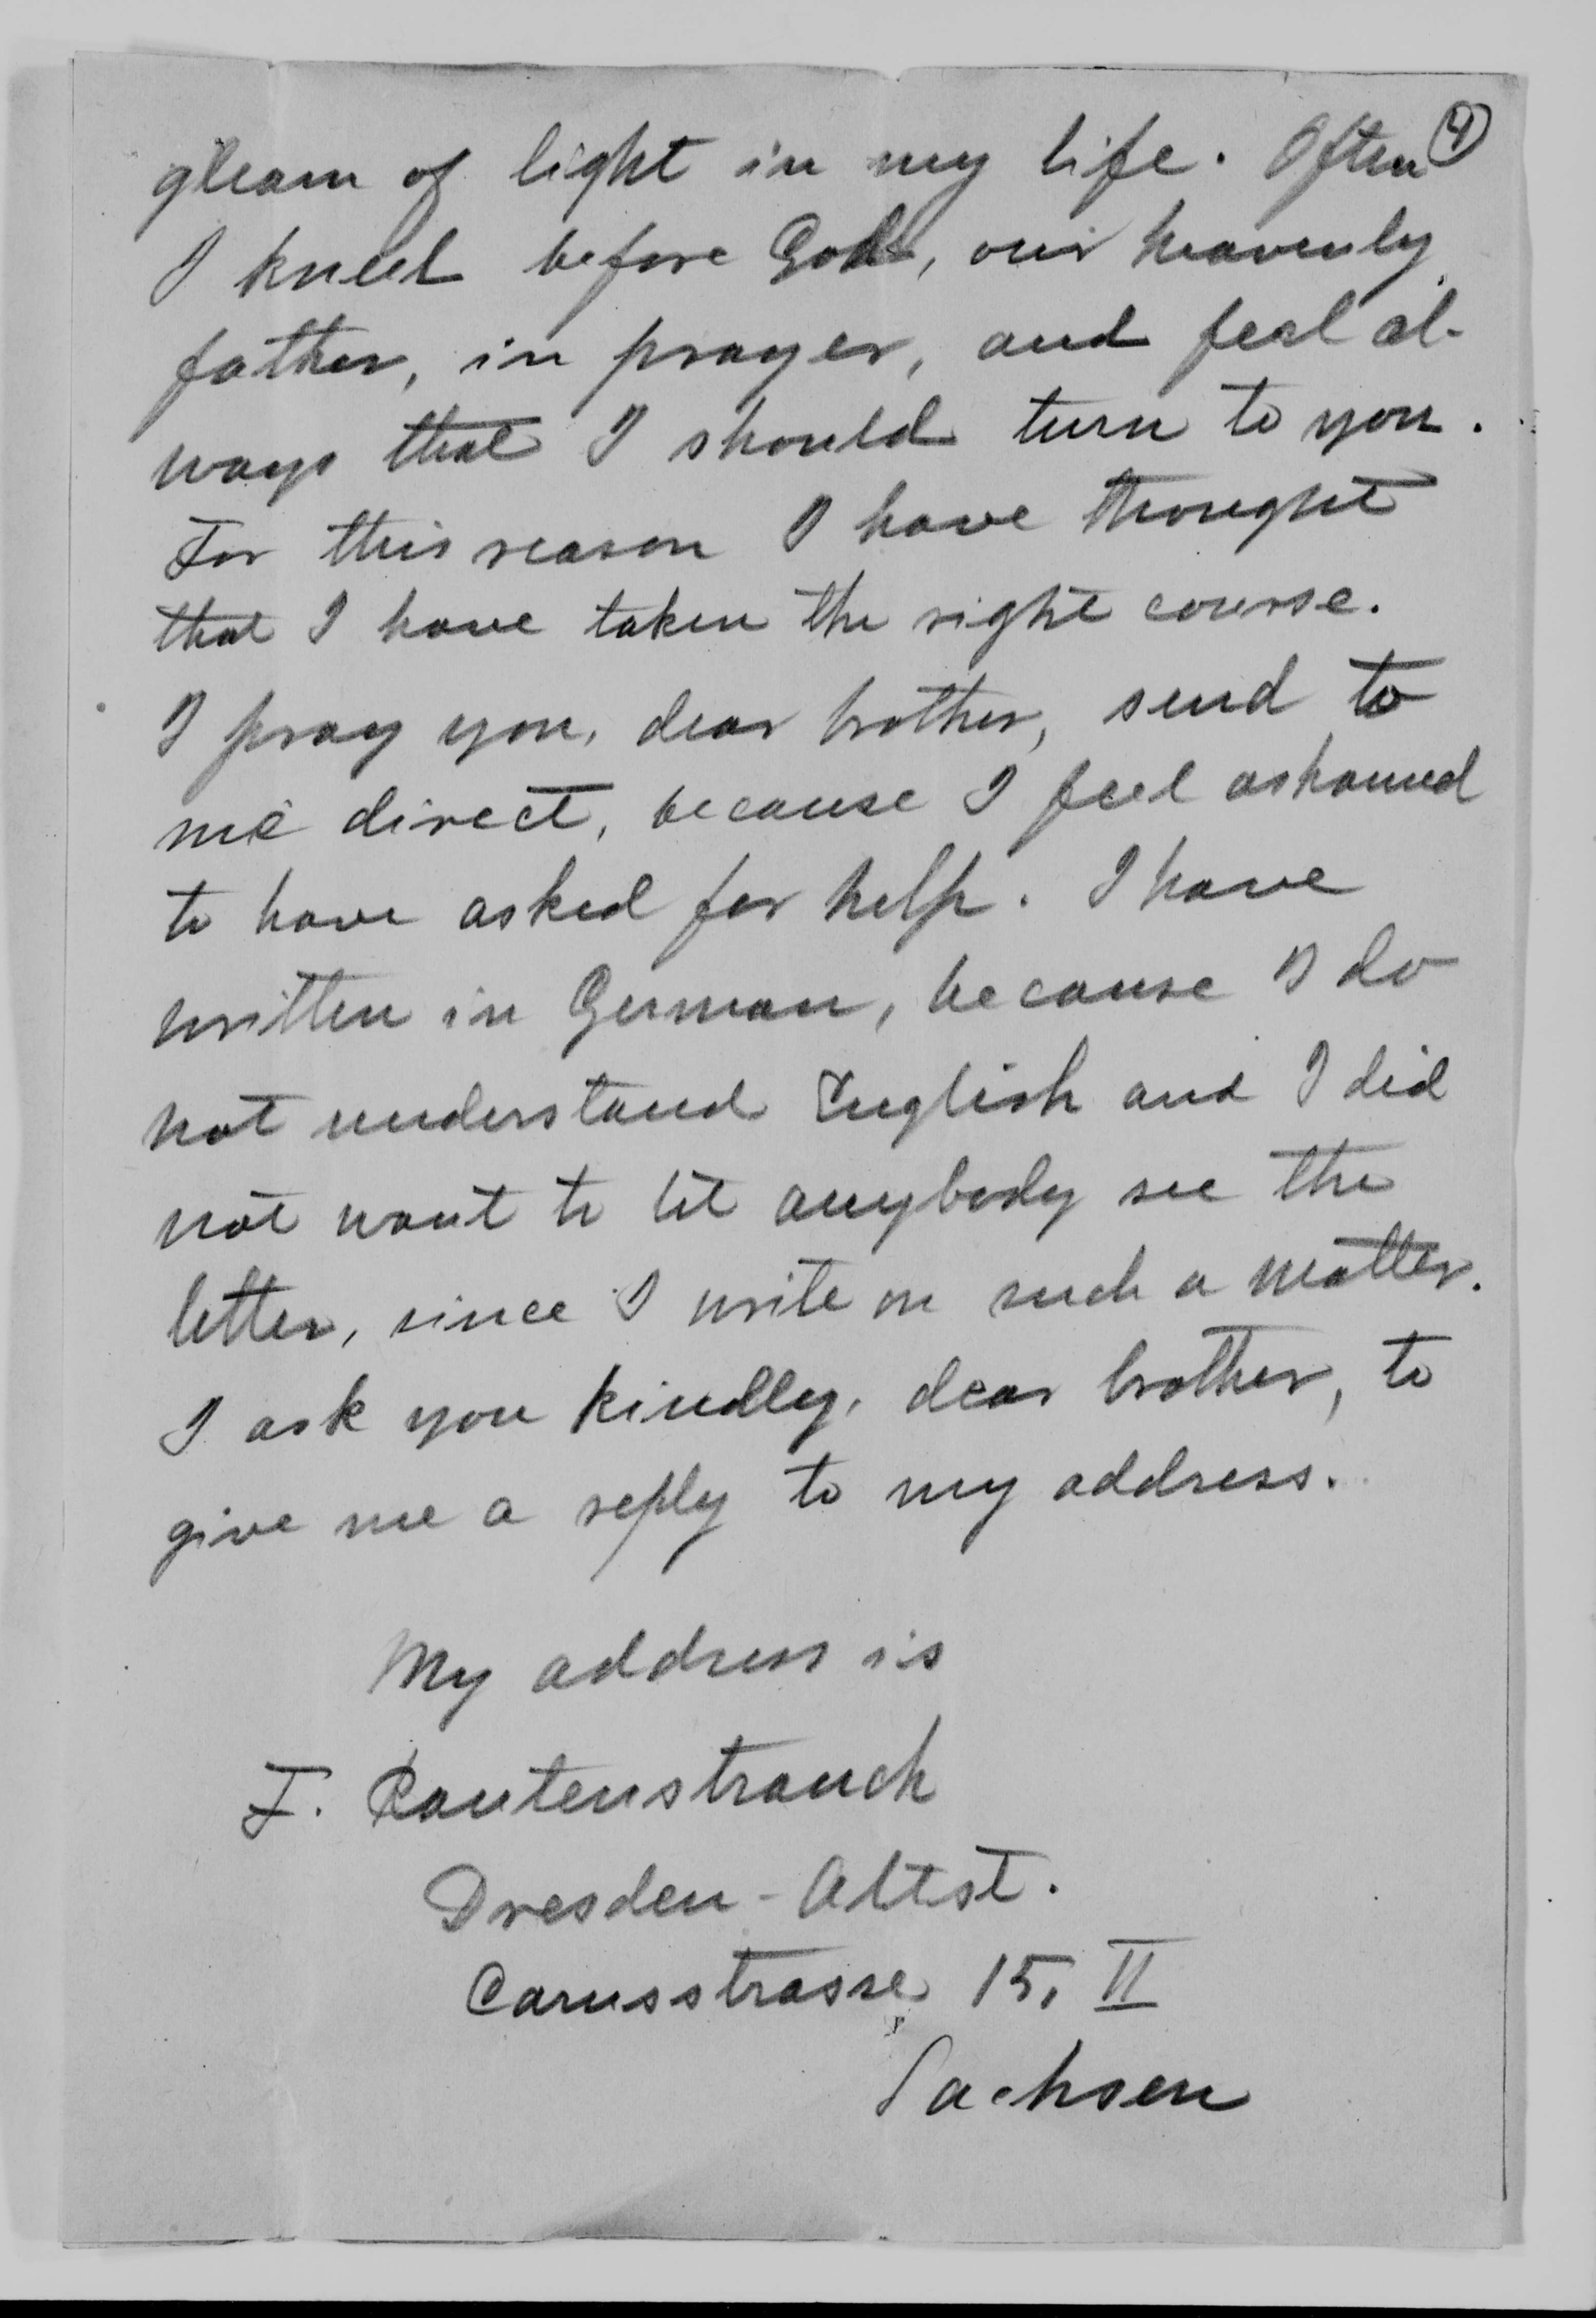 gleam of light in my life. Often 4
I kneel before God, our heavenly
father, in prayer, and feel al-
ways that I should turn to you.
For this reason I have thought
that I have taken the right course.
I pray you, dear brother, send to
me direct, because I feel ashamed
to have asked for help. I have
written in German, because I do
not understand English and I did
not want to let anybody see the
letter, since I write on such a matter.
I ask you kindly, dear brother, to
give me a reply to my address.
My address is
F. Rautenstrauch
Dresden - Altst.
Carusstrasse 15, II
Sachsen